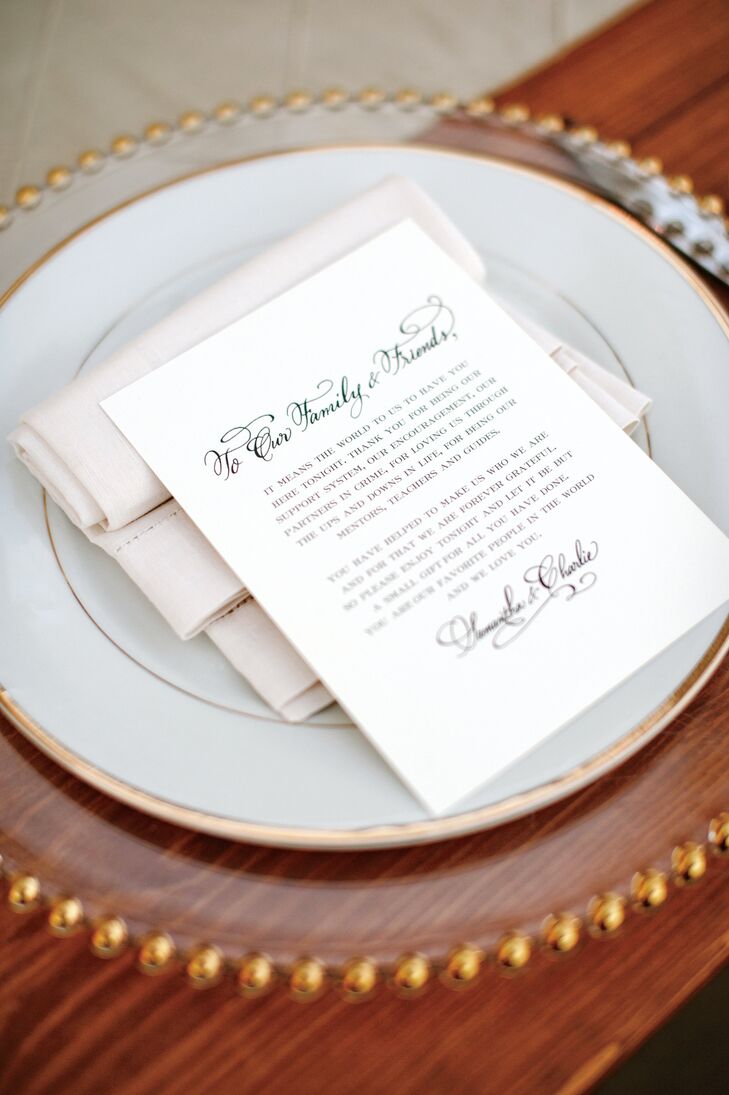 To Our Family & Friends,
IT MEANS THE WORLD TO US TO HAVE YOU
HERE TONIGHT. THANK YOU FOR BEING OUR
SUPPORT SYSTEM, OUR ENCOURAGEMENT, OUR
PARTNERS IN CRIME, FOR LOVING US THROUGH
THE UPS AND DOWNS IN LIFE, FOR BEING OUR
MENTORS, TEACHERS AND GUIDES.
YOU HAVE HELPED TO MAKE US WHO WE ARE
AND FOR THAT WE ARE FOREVER GRATEFUL,
SO PLEASE ENJOY TONIGHT AND LET IT BE BUT
A SMALL GIFT FOR ALL YOU HAVE DONE,
YOU ARE OUR FAVORITE PEOPLE IN THE WORLD
AND WE LOVE YOU.
Samantha & Charlie